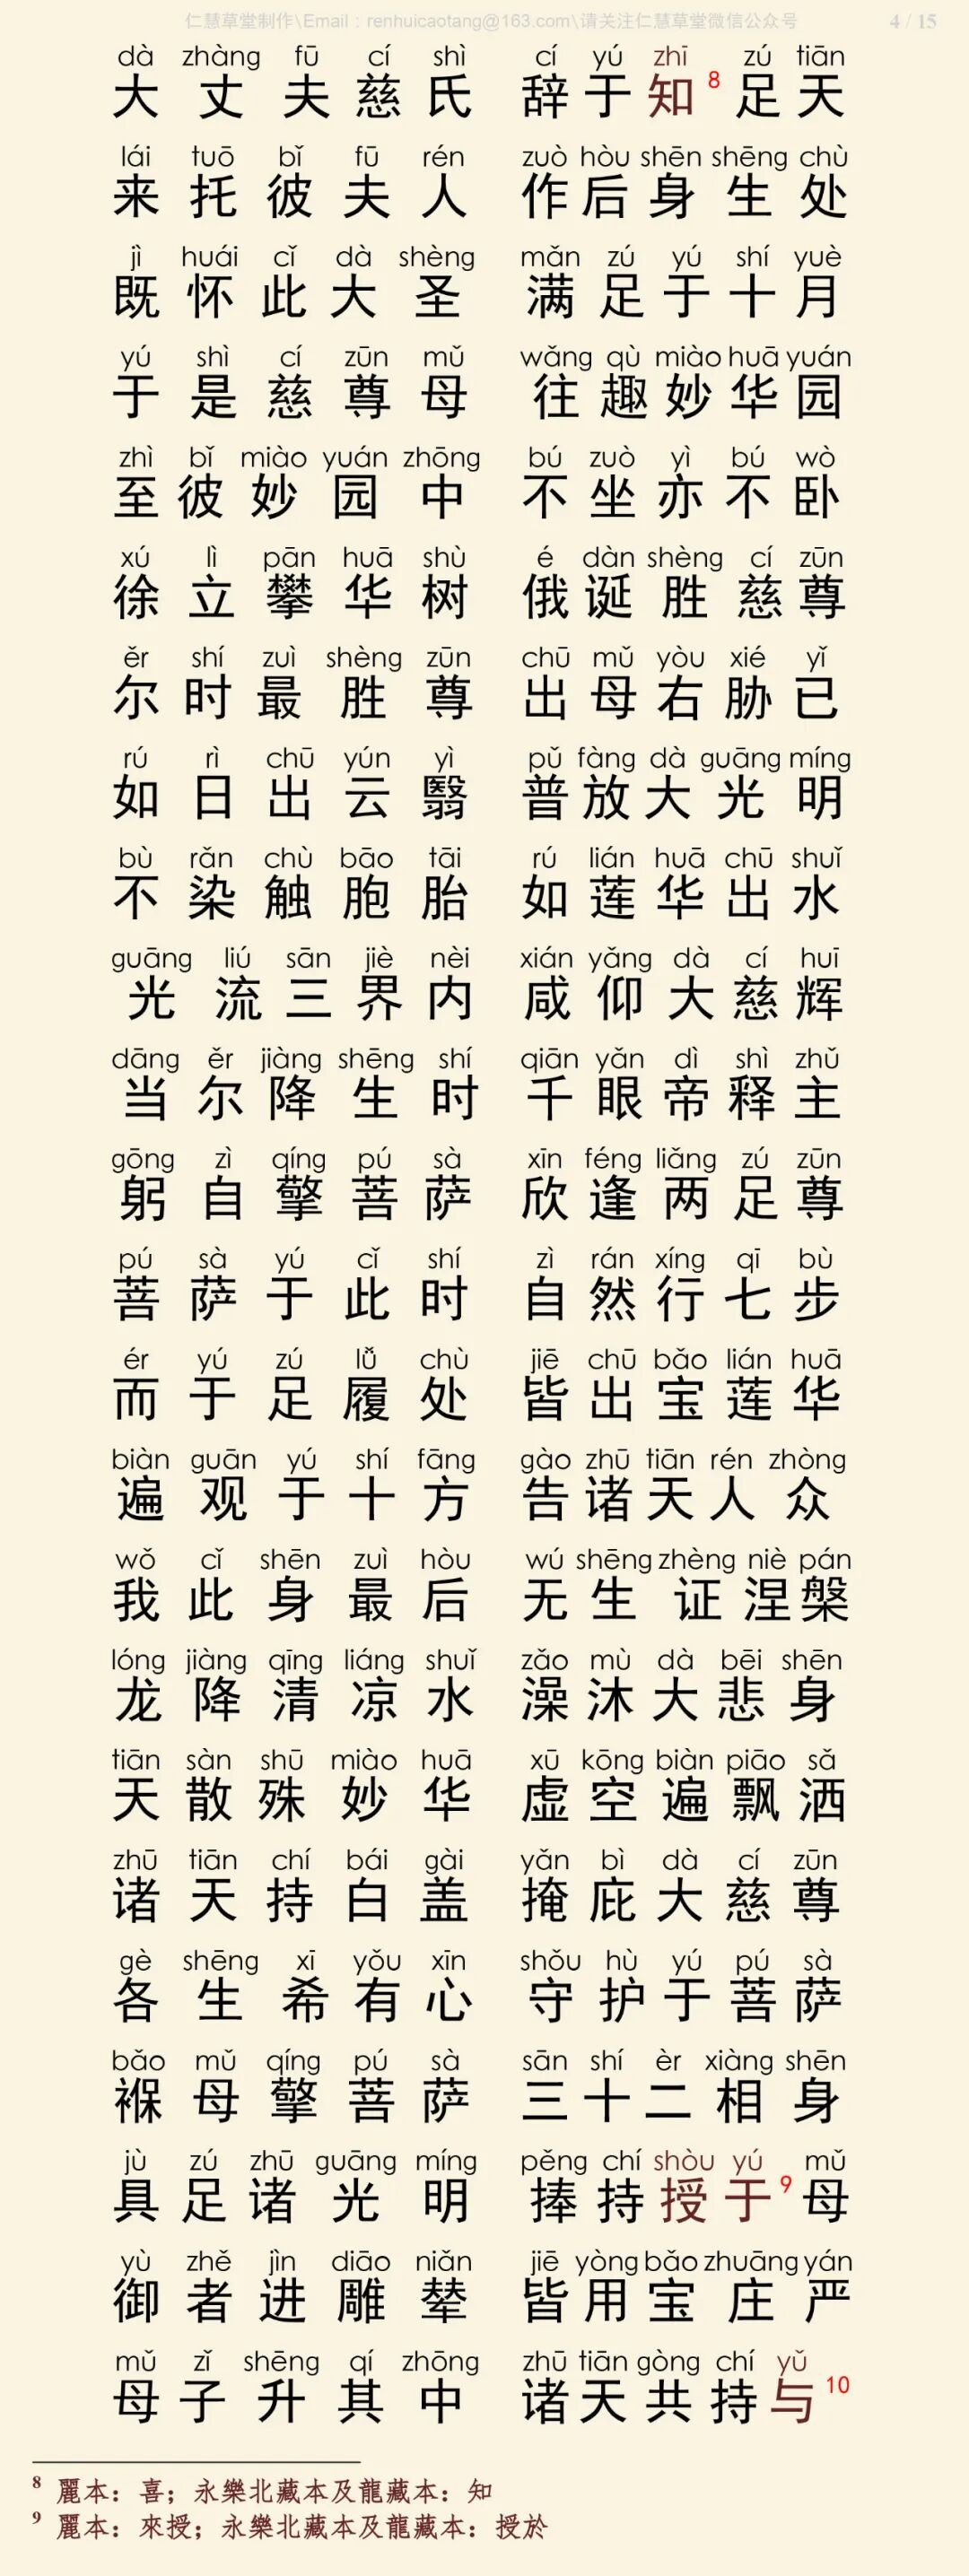 仁慧草堂制作\Email：renhuicaotang@163.com\请关注仁慧草堂微信公众号 4 / 15
dà zhàng fū cí shì cí yú zhī zú tiān
大丈夫慈氏 辞于知8足天
lái tuō bǐ fū rén zuò hòu shēn shēng chù
来托彼夫人 作后身生处
jì huái cǐ dà shèng mǎn zú yú shí yuè
既怀此大圣 满足于十月
yú shì cí zūn mǔ wǎng qù miào huā yuán
于是慈尊母 往趣妙华园
zhì bǐ miào yuán zhōng bú zuò yì bú wò
至彼妙园中 不坐亦不卧
xú lì pān huā shù é dàn shèng cí zūn
徐立攀华树 俄诞胜慈尊
ěr shí zuì shèng zūn chū mǔ yòu xié yǐ
尔时最胜尊 出母右胁已
rú rì chū yún yì pǔ fàng dà guāng míng
如日出云翳 普放大光明
bù rǎn chù bāo tāi rú lián huā chū shuǐ
不染触胞胎 如莲华出水
guāng liú sān jiè nèi xián yǎng dà cí huī
光流三界内 咸仰大慈辉
dāng ěr jiàng shēng shí qiān yǎn dì shì zhǔ
当尔降生时 千眼帝释主
gōng zì qíng pú sà xīn féng liǎng zú zūn
躬自擎菩萨 欣逢两足尊
pú sà yú cǐ shí zì rán xíng qī bù
菩萨于此时 自然行七步
ér yú zú lǚ chù jiē chū bǎo lián huā
而于足履处 皆出宝莲华
biàn guān yú shí fāng gào zhū tiān rén zhòng
遍观于十方 告诸天人众
wǒ cǐ shēn zuì hòu wú shēng zhèng niè pán
我此身最后 无生证涅槃
lóng jiàng qīng liáng shuǐ zǎo mù dà bēi shēn
龙降清凉水 澡沐大悲身
tiān sàn shū miào huā xū kōng biàn piāo sǎ
天散殊妙华 虚空遍飘洒
zhū tiān chí bái gài yǎn bì dà cí zūn
诸天持白盖 掩庇大慈尊
gè shēng xī yǒu xīn shǒu hù yú pú sà
各生希有心 守护于菩萨
bǎo mǔ qíng pú sà sān shí èr xiàng shēn
褓母擎菩萨 三十二相身
jù zú zhū guāng míng pěng chí shòu yú mǔ
具足诸光明 捧持授于9母
yù zhě jìn diāo niǎn jiē yòng bǎo zhuāng yán
御者进雕辇 皆用宝庄严
mǔ zǐ shēng qí zhōng zhū tiān gòng chí yǔ
母子升其中 诸天共持与10
8 麗本：喜；永樂北藏本及龍藏本：知
9 麗本：來授；永樂北藏本及龍藏本：授於